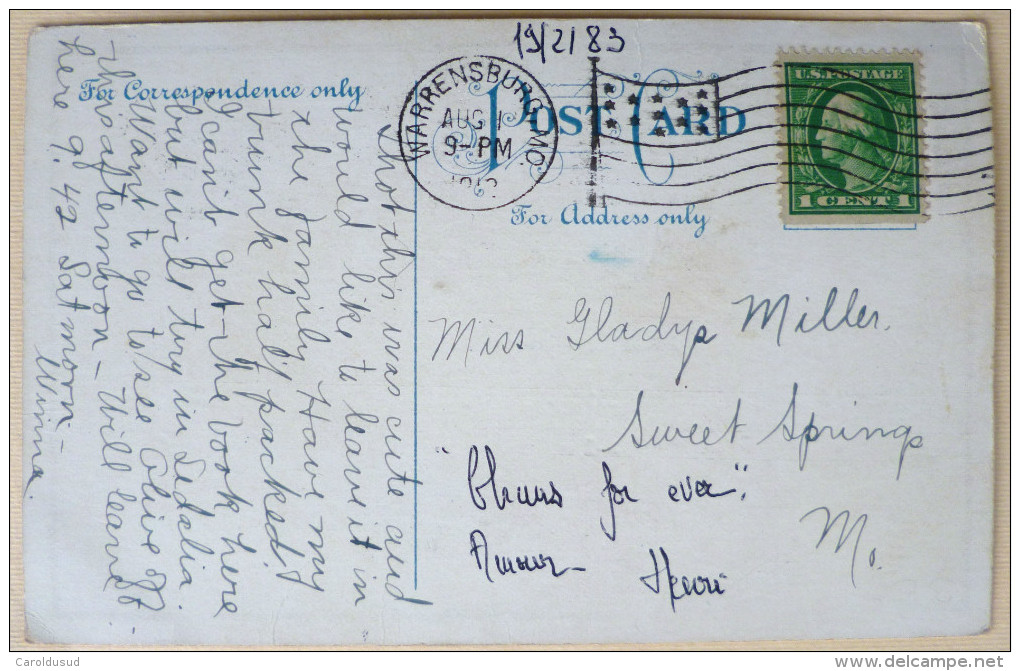 19/2/83
For Correspondence only
POST CARD
For Address only
WARRENSBURG, MO.
AUG 1
9-PM
U.S. POSTAGE
1 CENT 1
Thot this was cute and
would like to leave it in
the family. Have my
trunk half packed.
I can't get the book here
but will try in Sedalia.
Want to go to see Olive
this afternoon - Will leave
here 9.42 Sat morn-
Winna.
Miss Gladys Miller.
Sweet Springs
Mo.
for ever."
Amour
Henri
Caroldusud
www.delcampe.net